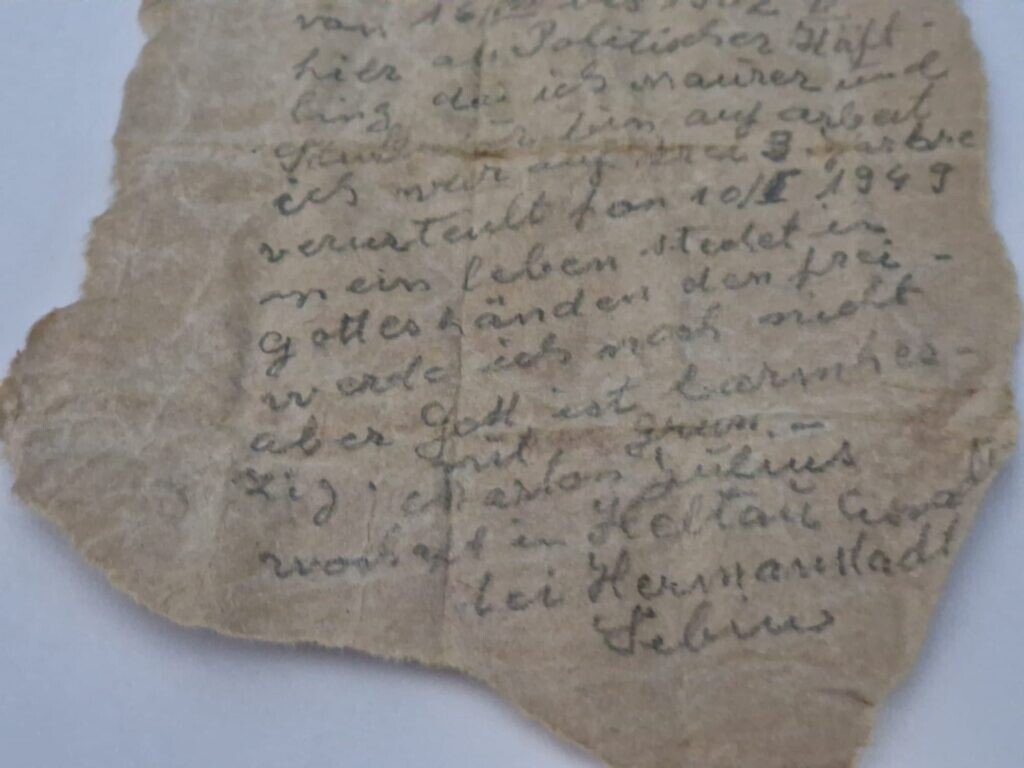 von 16
hier als Politischer Häft-
ling da ich maurer und
bin auf arbeit
ich war auf drei 3 jarhre
verurteult fon 10/I 1949
mein leben stedet in
gottes händen den frei-
werde ich noch nicht
aber Gott ist barmher-
zig. mit grun.-
Marton Julius
wohnt in Heltau
bei Hermanstadt
Sebiu